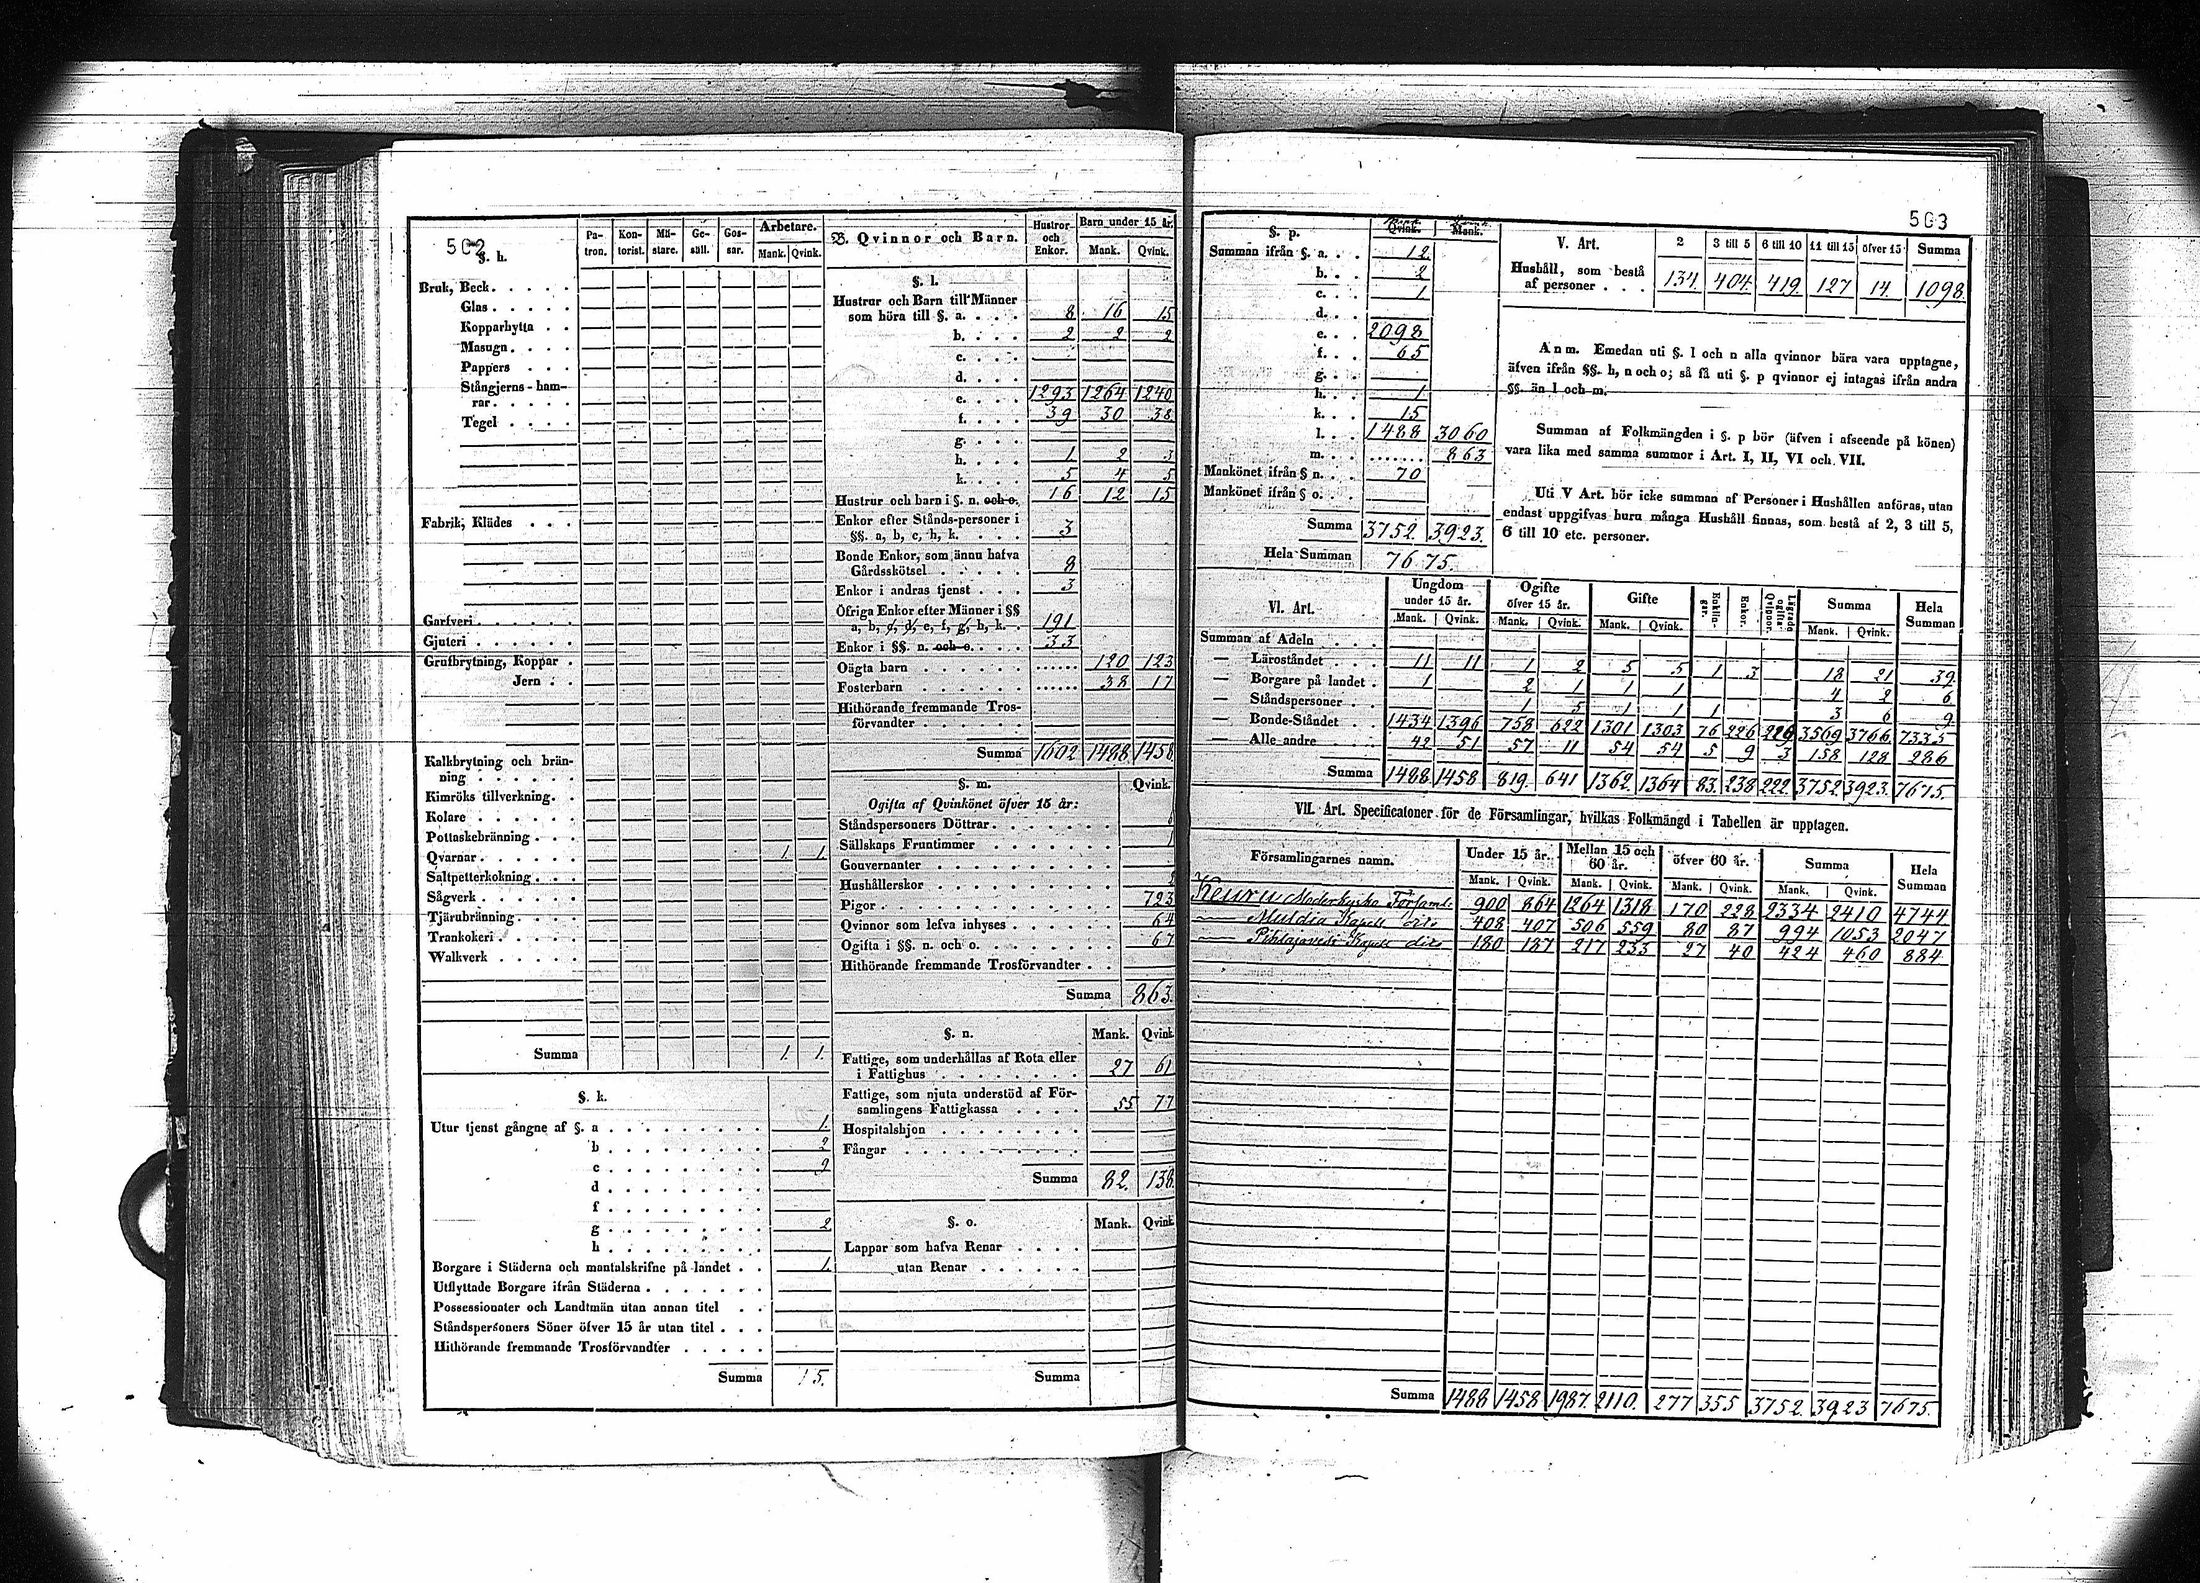 502
§. h.
Pa-tron. Kon-torist. Mä-stare. Ge-säll. Gos-sar. Arbetare. Mank. Qvink.
Bruk, Beck
Glas
Kopparhytta
Masugn
Pappers
Stångjerns-ham-
rar
Tegel
Fabrik, Klädes
Garfveri
Gjuteri
Grufbrytning, Koppar
Jern
Kalkbrytning och brän-
ning
Kimröks tillverkning
Kolare
Pottaskebränning
Qvarnar 1. 1.
Saltpetterkokning
Sågverk
Tjärubränning
Trankokeri
Walkverk
Summa 1. 1.
§. k.
Utur tjenst gångne af §. a 1.
b 2
c 9
d
f
g 2
h
Borgare i Städerna och mantalskrifne på landet 1.
Utflyttade Borgare ifrån Städerna
Possessionater och Landtmän utan annan titel
Ståndspersoners Söner öfver 15 år utan titel
Hithörande fremmande Trosförvandter
Summa 15.
B. Qvinnor och Barn. Hustror och Enkor. Barn under 15 år. Mank. Qvink.
§. l.
Hustrur och Barn till Männer
som höra till §. a. 8 16 15
b. 2 2 2
c.
d.
e. 1293 1264 1240
f. 39 30 38
g.
h. 1 2 3
k. 5 4 5
Hustrur och barn i §. n. och o. 16 12 15
Enkor efter Stånds-personer i
§§. a, b, c, h, k. 3
Bonde Enkor, som ännu hafva
Gårdsskötsel 8
Enkor i andras tjenst 3
Öfriga Enkor efter Männer i §§
a, b, c, d, e, f, g, h, k. 191
Enkor i §§. n. och o. 33
Oägta barn 120 123
Fosterbarn 38 17
Hithörande fremmande Tros-
förvandter
Summa 1602 1488 1458
§. m. Qvink.
Ogifta af Qvinkönet öfver 15 år:
Ståndspersoners Döttrar
Sällskaps Fruntimmer 1
Gouvernanter
Hushållerskor 2
Pigor 723
Qvinnor som lefva inhyses 64
Ogifta i §§. n. och o. 67
Hithörande fremmande Trosförvandter
Summa 863.
§. n. Mank. Qvink.
Fattige, som underhållas af Rota eller
i Fattighus 27 61
Fattige, som njuta understöd af För-
samlingens Fattigkassa 55 77
Hospitalshjon
Fångar
Summa 82. 138
§. o. Mank. Qvink.
Lappar som hafva Renar
utan Renar
Summa
503
§. p. Qvink. Mank.
Summan ifrån §. a. 12.
b. 2
c. 1
d.
e. 2098.
f. 65
g.
h. 1
k. 15
l. 1488 3060
m. 863
Mankönet ifrån § n. 70
Mankönet ifrån § o.
Summa 3752. 3923.
Hela Summan 7675.
V. Art. 2 3 till 5 6 till 10 11 till 15 öfver 15 Summa
Hushåll, som bestå
af personer 134. 404. 419. 127 14. 1098.
Anm. Emedan uti §. l och n alla qvinnor böra vara upptagne,
äfven ifrån §§. h, n och o; så få uti §. p qvinnor ej intagas ifrån andra
§§. än l och m.
Summan af Folkmängden i §. p bör (äfven i afseende på könen)
vara lika med samma summor i Art. I, II, VI och VII.
Uti V Art. bör icke summan af Personer i Hushållen anföras, utan
endast uppgifvas huru många Hushåll finnas, som bestå af 2, 3 till 5,
6 till 10 etc. personer.
VI. Art. Ungdom under 15 år. Ogifte öfver 15 år. Gifte Enklin-gar. Enkor. Lägrade ogifta Qvinnor. Summa Hela Summan
Mank. Qvink. Mank. Qvink. Mank. Qvink. Mank. Qvink.
Summan af Adeln
— Läroståndet 11 11 1 2 5 5 1 3 18 21 39
— Borgare på landet 1 2 1 1 1 4 2 6
— Ståndspersoner 1 5 1 1 1 3 6 9
— Bonde-Ståndet 1434 1396 758 622 1301 1303 76 226 219 3569 3766. 7335
— Alle andre 42 51 57 11 54 54 5 9 3 158 128 286
Summa 1488. 1458 819. 641 1362. 1364 83. 238 222 3752 3923. 7675.
VII. Art. Specificatoner för de Församlingar, hvilkas Folkmängd i Tabellen är upptagen.
Församlingarnes namn. Under 15 år. Mellan 15 och 60 år. öfver 60 år. Summa Hela Summan
Mank. Qvink. Mank. Qvink. Mank. Qvink. Mank. Qvink.
Keuru Moderkyrko Församl. 900 864 1264 1318 170 228 2334 2410 4744
— Multia Kapell dito 408 407 506 559 80 87 994 1053 2047
— Pihlajavesi Kapell dito 180 187 217 233 27 40 424 460 884
Summa 1488 1458 1987. 2110. 277 355 3752. 3923 7675.